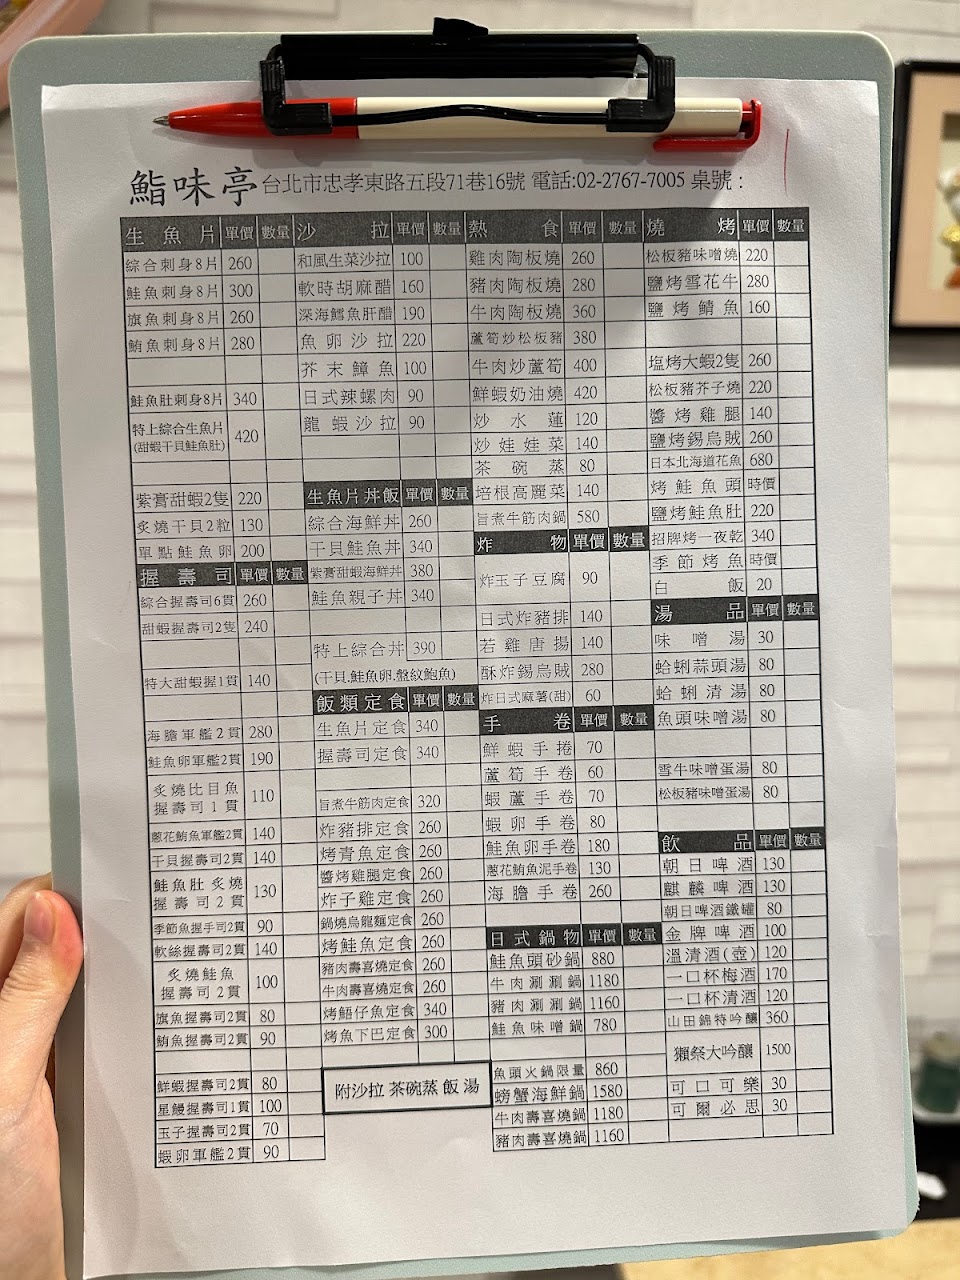 鮨味亭 台北市忠孝東路五段71巷16號 電話:02-2767-7005 桌號：
生魚片 單價 數量
綜合刺身8片 260
鮭魚刺身8片 300
旗魚刺身8片 260
鮪魚刺身8片 280
鮭魚肚刺身8片 340
特上綜合生魚片 420
(甜蝦干貝鮭魚肚)
紫膏甜蝦2隻 220
炙燒干貝2粒 130
單點鮭魚卵 200
握壽司 單價 數量
綜合握壽司6貫 260
甜蝦握壽司2隻 240
特大甜蝦握1貫 140
海膽軍艦2貫 280
鮭魚卵軍艦2貫 190
炙燒比目魚
握壽司1貫 110
蔥花鮪魚軍艦2貫 140
干貝握壽司2貫 140
鮭魚肚炙燒
握壽司2貫 130
季節魚握手司2貫 90
軟絲握壽司2貫 140
炙燒鮭魚
握壽司2貫 100
旗魚握壽司2貫 80
鮪魚握壽司2貫 90
鮮蝦握壽司2貫 80
星鰻握壽司1貫 100
玉子握壽司2貫 70
蝦卵軍艦2貫 90
沙拉 單價 數量
和風生菜沙拉 100
軟時胡麻醋 160
深海鱈魚肝醋 190
魚卵沙拉 220
芥末鱆魚 100
日式辣螺肉 90
龍蝦沙拉 90
生魚片丼飯 單價 數量
綜合海鮮丼 260
干貝鮭魚丼 340
紫膏甜蝦海鮮丼 380
鮭魚親子丼 340
特上綜合丼 390
(干貝.鮭魚卵.盤紋鮑魚)
飯類定食 單價 數量
生魚片定食 340
握壽司定食 340
旨煮牛筋肉定食 320
炸豬排定食 260
烤青魚定食 260
醬烤雞腿定食 260
炸子雞定食 260
鍋燒烏龍麵定食 260
烤鮭魚定食 260
豬肉壽喜燒定食 260
牛肉壽喜燒定食 260
烤鯃仔魚定食 340
烤魚下巴定食 300
附沙拉 茶碗蒸 飯 湯
熱食 單價 數量
雞肉陶板燒 260
豬肉陶板燒 280
牛肉陶板燒 360
蘆筍炒松板豬 380
牛肉炒蘆筍 400
鮮蝦奶油燒 420
炒水蓮 120
炒娃娃菜 140
茶碗蒸 80
培根高麗菜 140
旨煮牛筋肉鍋 580
炸物 單價 數量
炸玉子豆腐 90
日式炸豬排 140
若雞唐揚 140
酥炸錫烏賊 280
炸日式麻薯(甜) 60
手卷 單價 數量
鮮蝦手捲 70
蘆筍手卷 60
蝦蘆手卷 70
蝦卵手卷 80
鮭魚卵手卷 180
蔥花鮪魚泥手卷 130
海膽手卷 260
日式鍋物 單價 數量
鮭魚頭砂鍋 880
牛肉涮涮鍋 1180
豬肉涮涮鍋 1160
鮭魚味噌鍋 780
魚頭火鍋限量 860
螃蟹海鮮鍋 1580
牛肉壽喜燒鍋 1180
豬肉壽喜燒鍋 1160
燒烤 單價 數量
松板豬味噌燒 220
鹽烤雪花牛 280
鹽烤鯖魚 160
塩烤大蝦2隻 260
松板豬芥子燒 220
醬烤雞腿 140
鹽烤錫烏賊 260
日本北海道花魚 680
烤鮭魚頭 時價
鹽烤鮭魚肚 220
招牌烤一夜乾 340
季節烤魚 時價
白飯 20
湯品 單價 數量
味噌湯 30
蛤蜊蒜頭湯 80
蛤蜊清湯 80
魚頭味噌湯 80
雪牛味噌蛋湯 80
松板豬味噌蛋湯 80
飲品 單價 數量
朝日啤酒 130
麒麟啤酒 130
朝日啤酒鐵罐 80
金牌啤酒 100
溫清酒(壺) 120
一口杯梅酒 170
一口杯清酒 120
山田錦特吟釀 360
獺祭大吟釀 1500
可口可樂 30
可爾必思 30